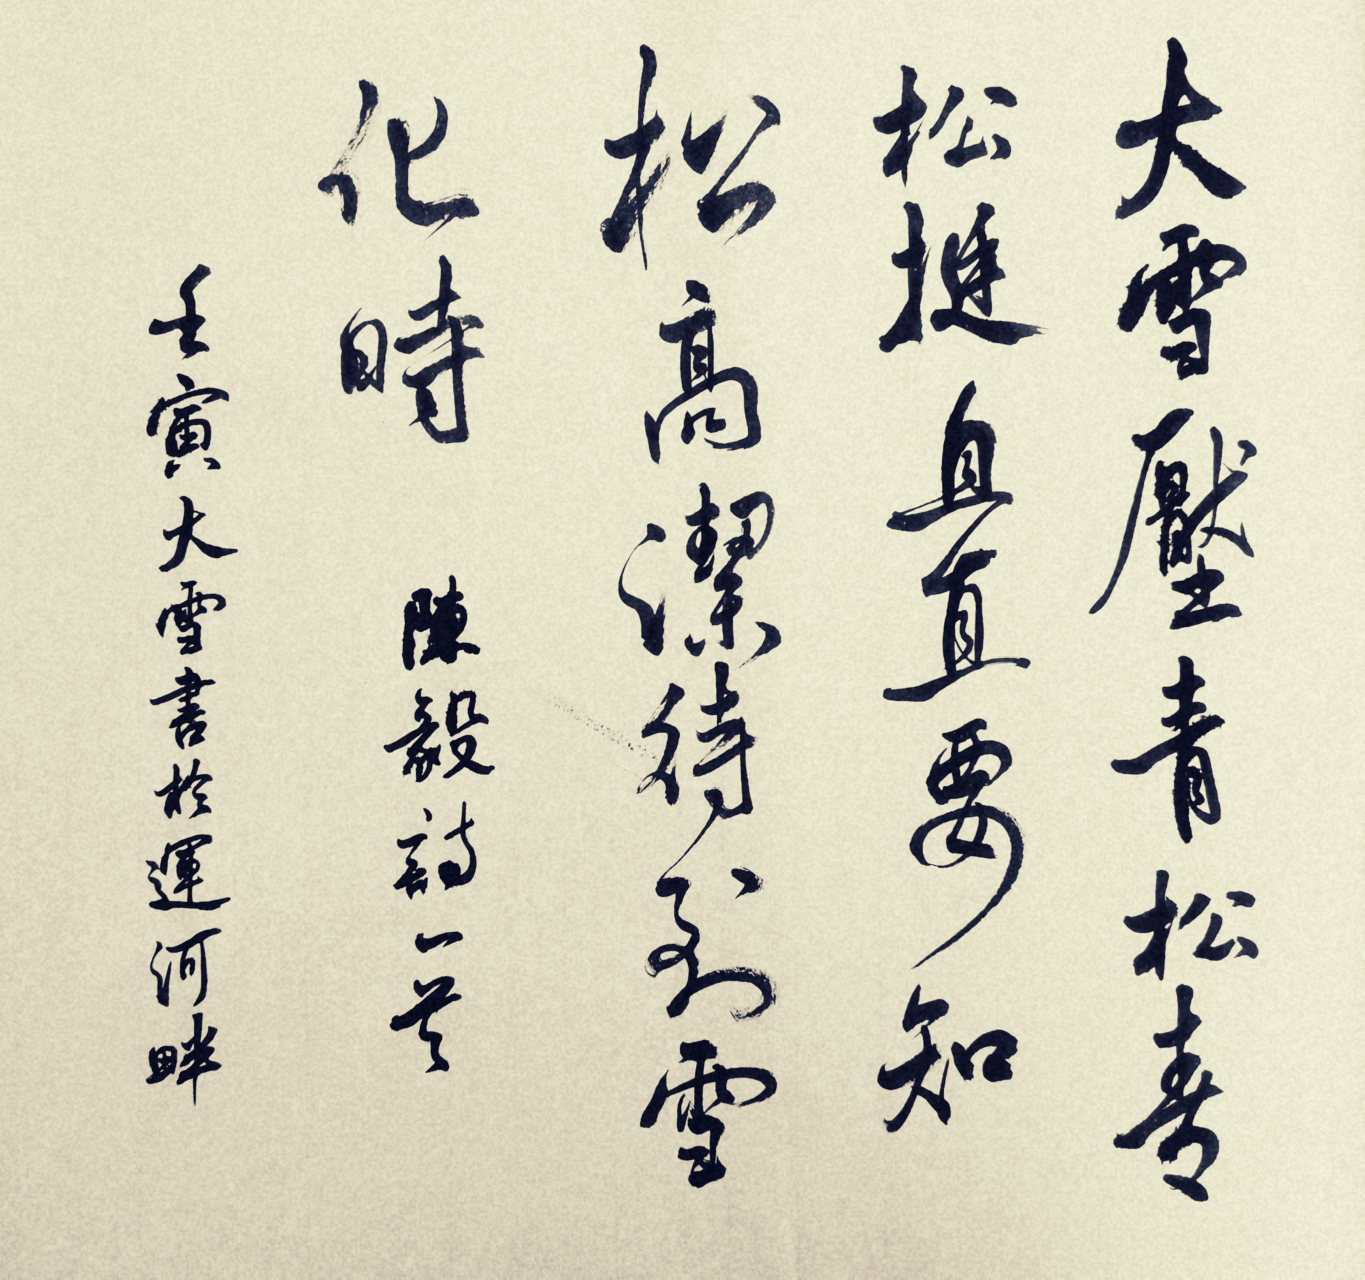 大雪壓青松青
松挺且直要知
松高潔待到雪
化時 陳毅詩一首
壬寅大雪書於運河畔